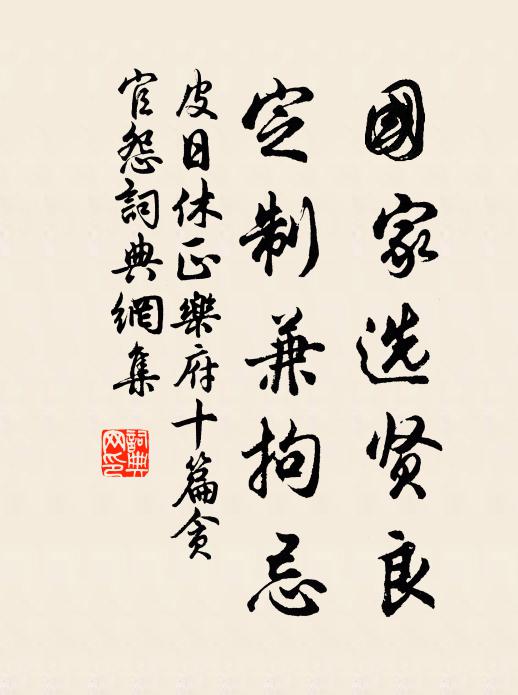 國家选贤良
定制兼拘忌
皮日休正樂府十篇貪
官怨詞典網集
詞典
网印